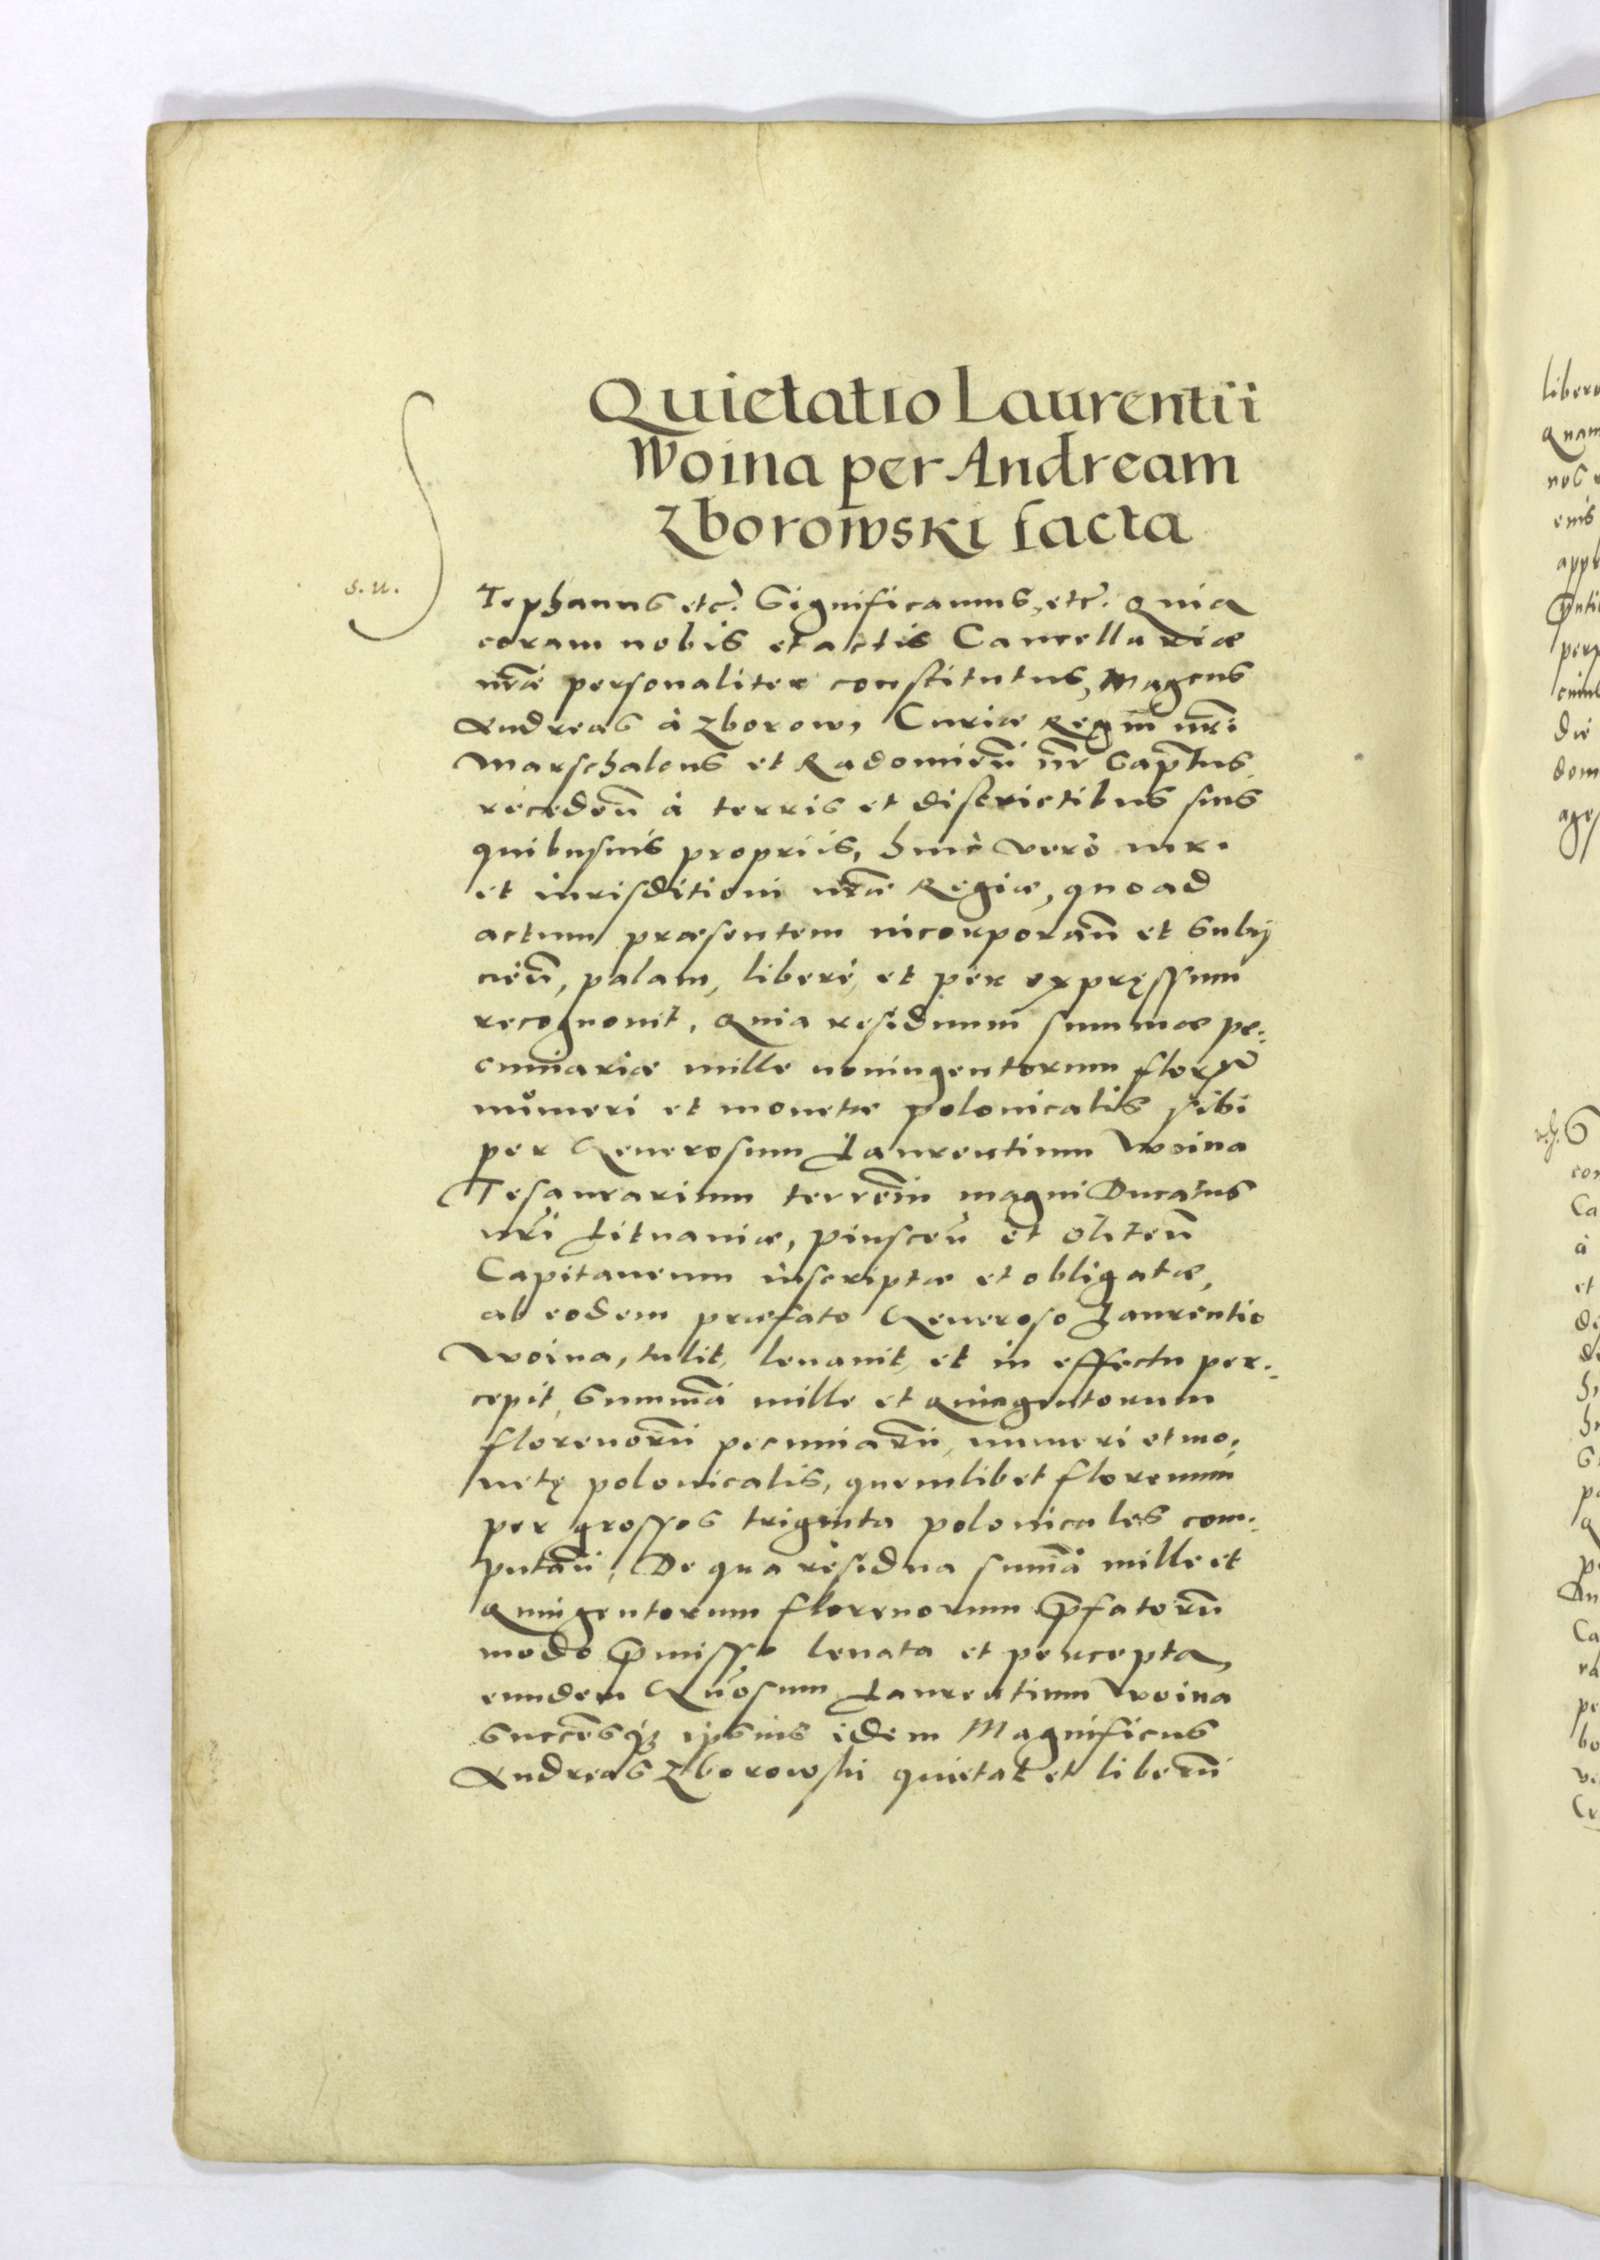 Quietatio Laurentii
Woina per Andream
Zborowski facta
s. u.
STephanus etc. Significamus, etc. Quia
coram nobis et actis Cancellariæ
nræ personaliter constitutus, Magcus
Andreas à Zborow, Curiæ Regni nri
Marschalcus et Radomien nr Captus,
recedeñ à terris et districtibus suis
quibusuis propriis, huic vero iuri
et iurisditioni nræ Regiæ, quo ad
actum præsentem incorporañ et subij
cieñ, palam, liberè, et per expręssum
recognouit, Quia residuum summæ pe:
cuniariæ mille noningentorum floren
numeri et monetæ polonicalis sibi
per Generosum Laurentium Woina
Tesaurarium terreñ magni Ducatus
nri Lituaniæ, pinsceñ et Oliteñ
Capitaneum inscriptæ et obligatæ,
ab eodem præfato Generoso Laurentio
Woina, tulit, leuauit, et in effectu per:
cepit, Summā mille et quingentorum
florenorū pecuniarū, numeri et mo:
netę polonicalis, quemlibet florenum
per grossos triginta polonicales com:
putañ, De qua residua summa mille et
Quingentorum florenorum pfatorū
modo pmisso leuata et percepta,
eundem Gnosum Laurentium Woina
succesq3 ipsius idem Magnificus
Andreas Zborowski quietat et liberū